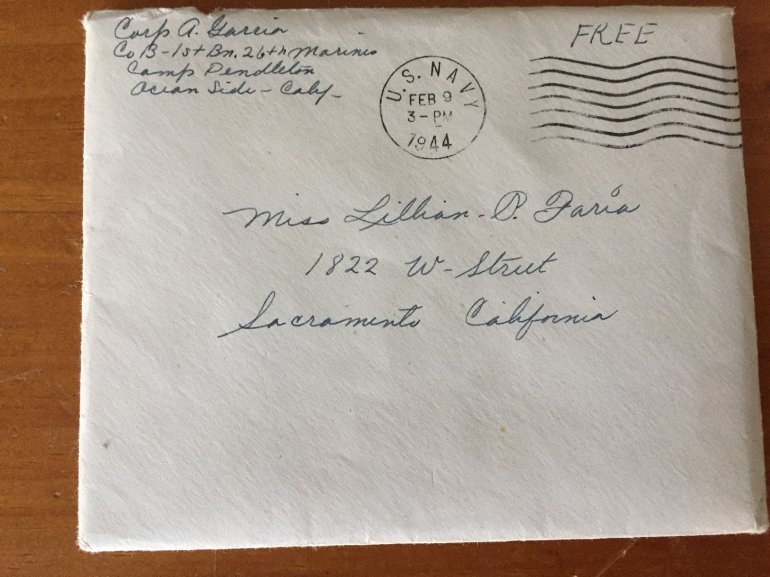 Corp A. Garcia
Co B-1st Bn. 26th Marines
Camp Pendleton
Ocean Side - Calif-
FREE
U.S. NAVY
FEB 9
3-PM
1944
Miss Lillian-P. Faria
1822 W-Street
Sacramento California